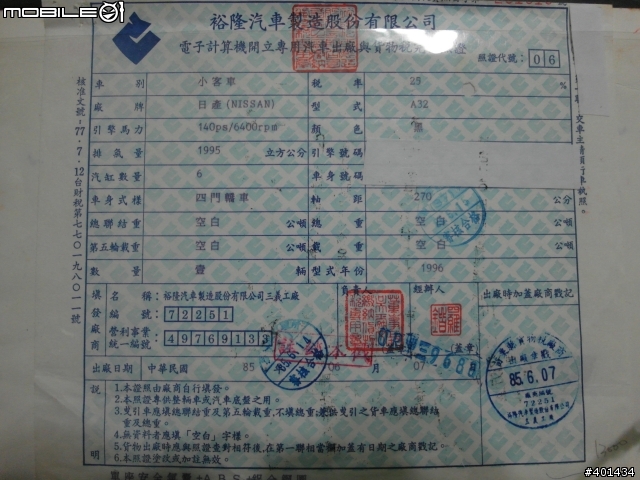 mobile01
裕隆汽車製造股份有限公司
電子計算機開立專用汽車出廠與貨物稅 證
照證代號： 06
車別 小客車 稅率 25 %
廠牌 日產(NISSAN) 型式 A32
引擎馬力 140ps/6400rpm 顏色 黑
排氣量 1995 立方公分 引擎號碼
汽缸數量 6 車身號碼
車身式樣 四門轎車 軸距 270 公分
總聯結重 空白 公噸 總重 空白 公噸
第五輪載重 空白 公噸 載重 空白 公噸
數量 壹 輛 型式年份 1996
填發廠商 名稱：裕隆汽車製造股份有限公司三義工廠 負責人 經辦人 出廠時加蓋廠商戳記
72251
營利事業統一編號 49769133 (蓋章)
出廠日期 中華民國 85 年 06 月 07
85.6.07
72251
說明
1.本照證由廠商自行填發。
2.本照證專供整輛車或汽車底盤之用。
3.曳引車應填總聯結重及第五輪載重,不填總重;兼供曳引之貨車應填總聯結
重及總重。
4.無資料者應填「空白」字樣。
5.貨物出廠時應與照證查對相符後,在第一聯相當欄加蓋有日期之廠商戳記。
6.本照證塗改或加註無效。
核准文號：77.7.12台財稅第七七〇一九八〇一一號
交車主請領行車執照。
#401434